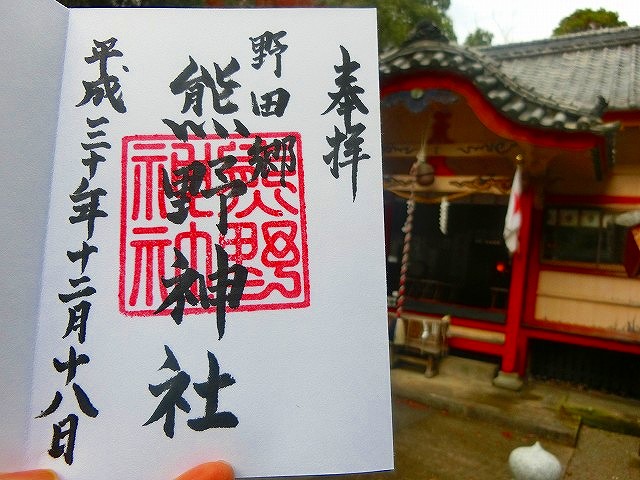 奉拝
野田郷
熊野神社
熊野神社神社
平成三十年十二月十八日